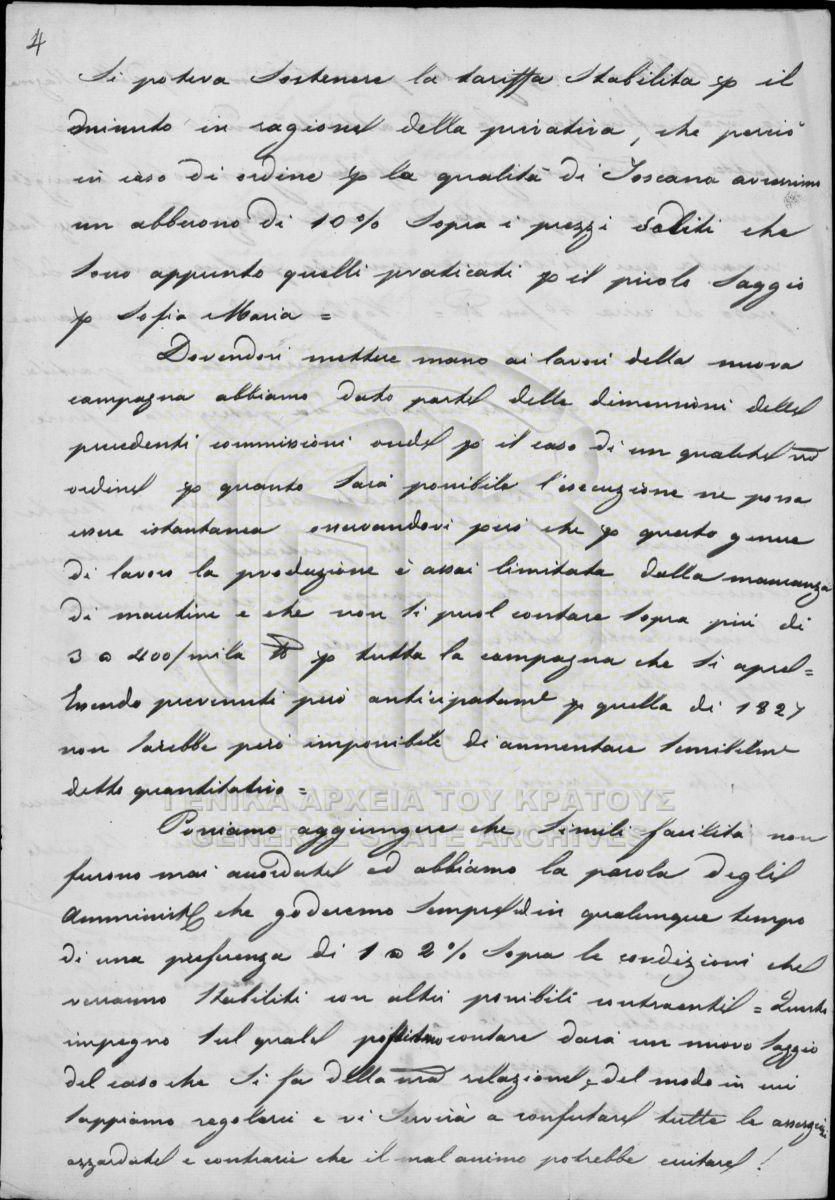 4
Si poteva sostenere la tariffa stabilita p il
minuto in ragione della privativa, che perciò
in caso di ordine p la qualità di Toscana avressimo
un abbuono di 10% sopra i prezzi soliti che
sono appunto quelli praticati p il picolo saggio
p Sofia Maria =
Dovendosi mettere mano ai lavori della nuova
campagna abbiamo dato parte delle dimensioni delle
precedenti commissioni onde p il caso di un qualche
ordine p quanto sarà possibile l'esecuzione ne possa
essere istantanea osservandovi però che p questo genere
di lavoro la produzione è assai limitata dalla mancanza
di e che non si puol contare sopra più di
3 a 400/mila p tutta la campagna che si apre =
Essendo prevenuti però anticipatam.e p quella di 1827
non sarebbe però impossibile di aumentare sensibilm.e
detto quantitativo =
ΓΕΝΙΚΑ ΑΡΧΕΙΑ ΤΟΥ ΚΡΑΤΟΥΣ
GENERAL STATE ARCHIVES
Possiamo aggiungere che simili facilità non
furono mai accordate ed abbiamo la parola degli
che goderemo sempre ed in qualunque tempo
di una preferenza di 1 a 2% sopra le condizioni che
verranno stabiliti con altri possibili contraenti = Questo
impegno sul quale contare darà un nuovo saggio
del caso che si fa della relazione, del modo in cui
sappiamo regolarci e vi servirà a confutare tutte le
azzardate e contrarie che il mal animo potrebbe !